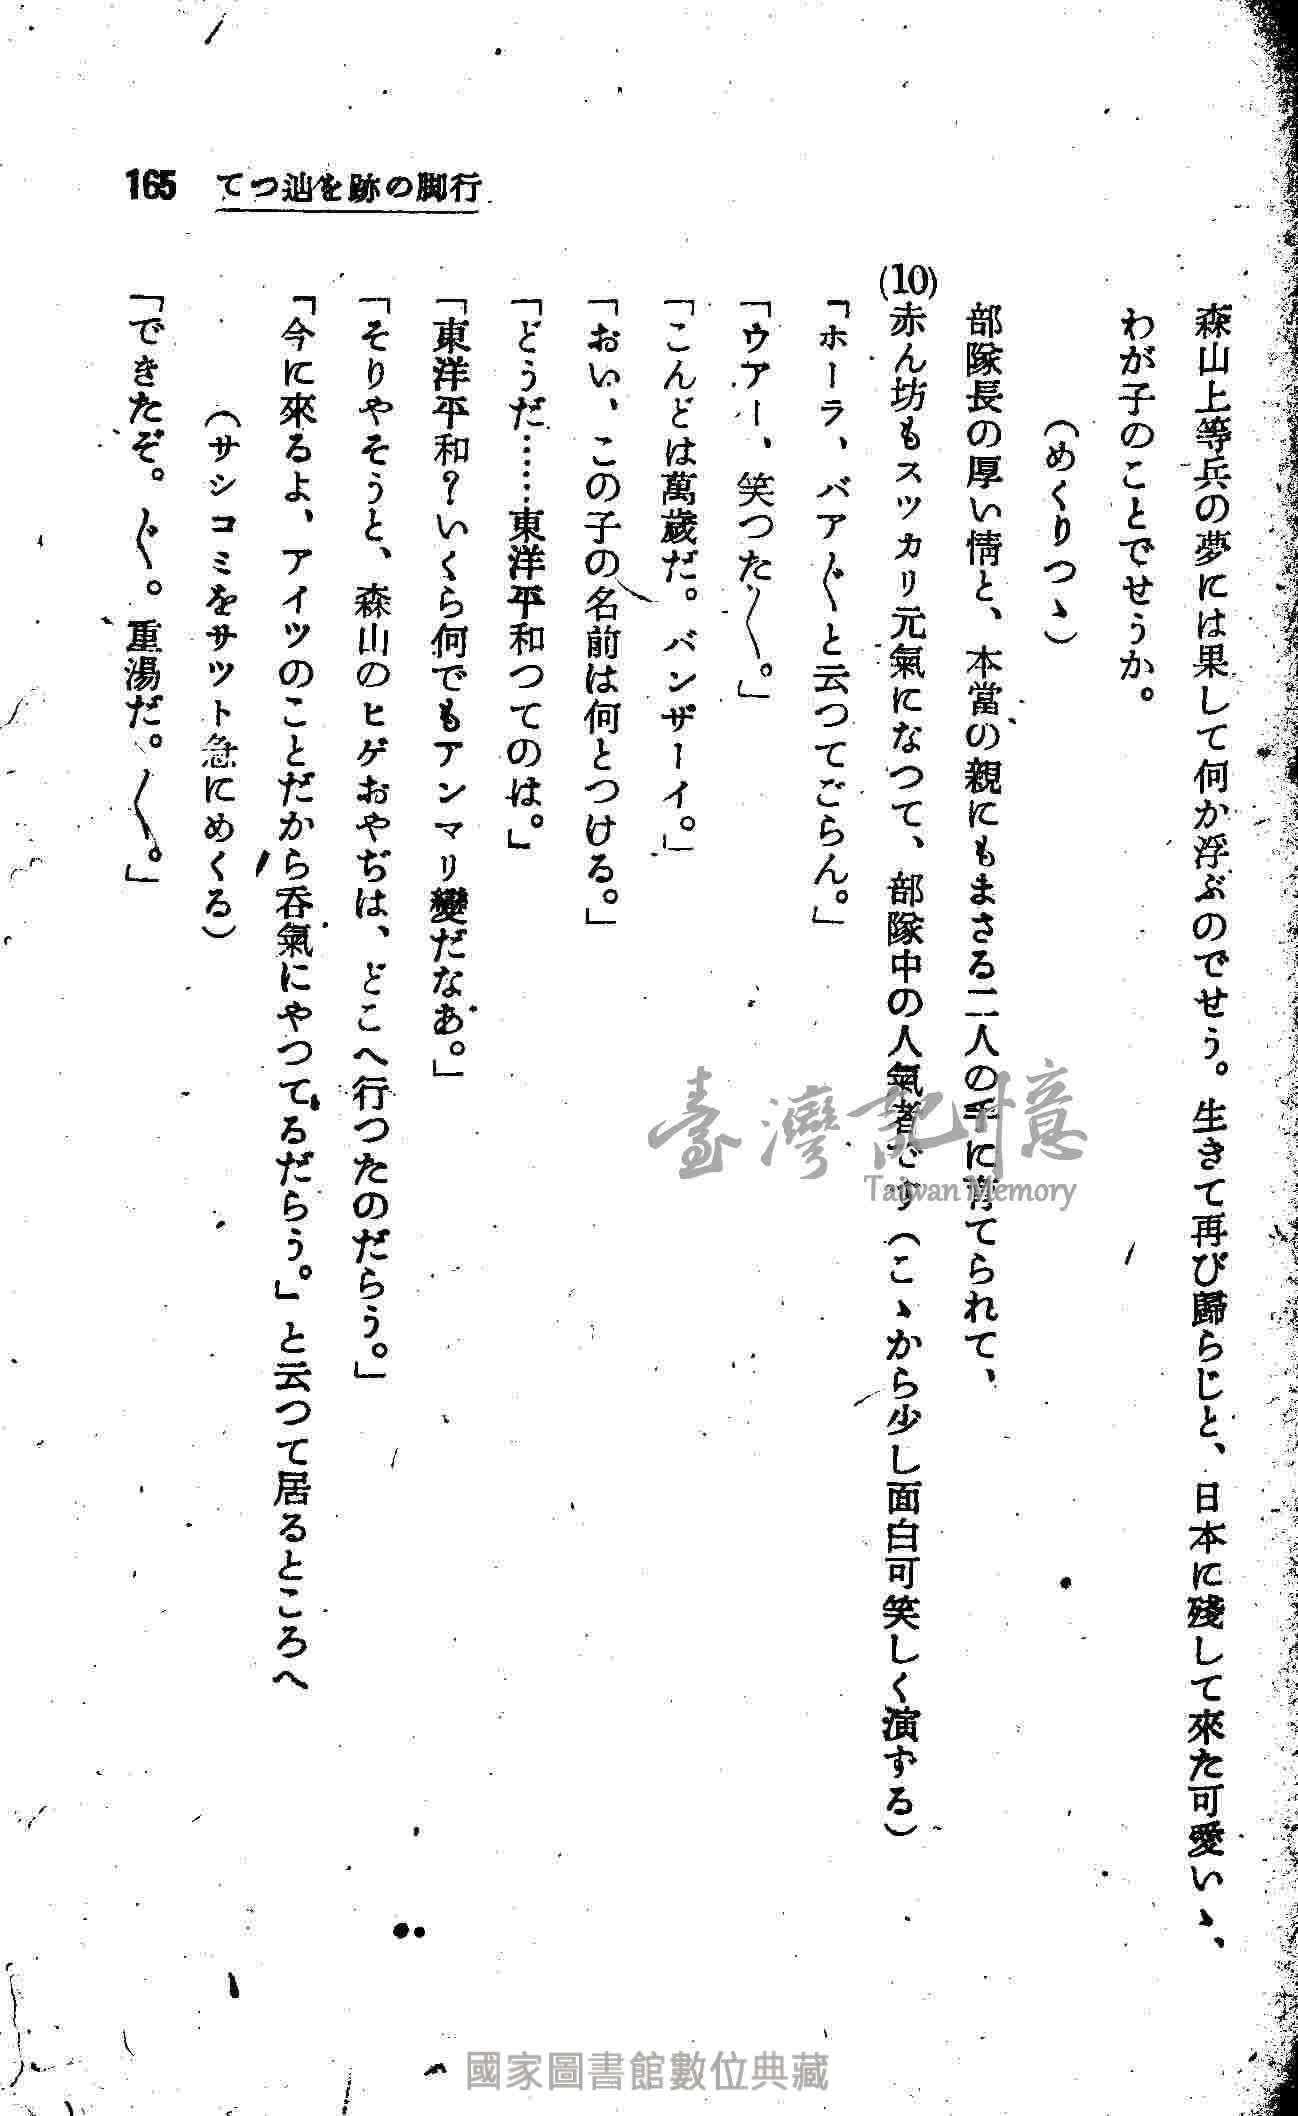 165 てつ辿を跡の脚行
森山上等兵の夢には果して何か浮ぶのでせう。生きて再び歸らじと、日本に殘して來た可愛いゝ、
わが子のことでせうか。
(めくりつゝ)
部隊長の厚い情と、本當の親にもまさる二人の手に育てられて、
(10)赤ん坊もスツカリ元氣になつて、部隊中の人氣者です(こゝから少し面白可笑しく演ずる)
「ホーラ、バア〴〵と云つてごらん。」
「ウアー、笑つた〳〵。」
「こんどは萬歳だ。バンザーイ。」
「おい、この子の名前は何とつける。」
「どうだ……東洋平和つてのは。」
「東洋平和?いくら何でもアンマリ變だなあ。」
「そりやそうと、森山のヒゲおやぢは、どこへ行つたのだらう。」
「今に來るよ、アイツのことだから呑氣にやつてるだらう。」と云つて居るところへ
(サシコミをサツト急にめくる)
「できたぞ。〴〵。重湯だ。〳〵。」
臺灣記憶
Taiwan Memory
國家圖書館數位典藏